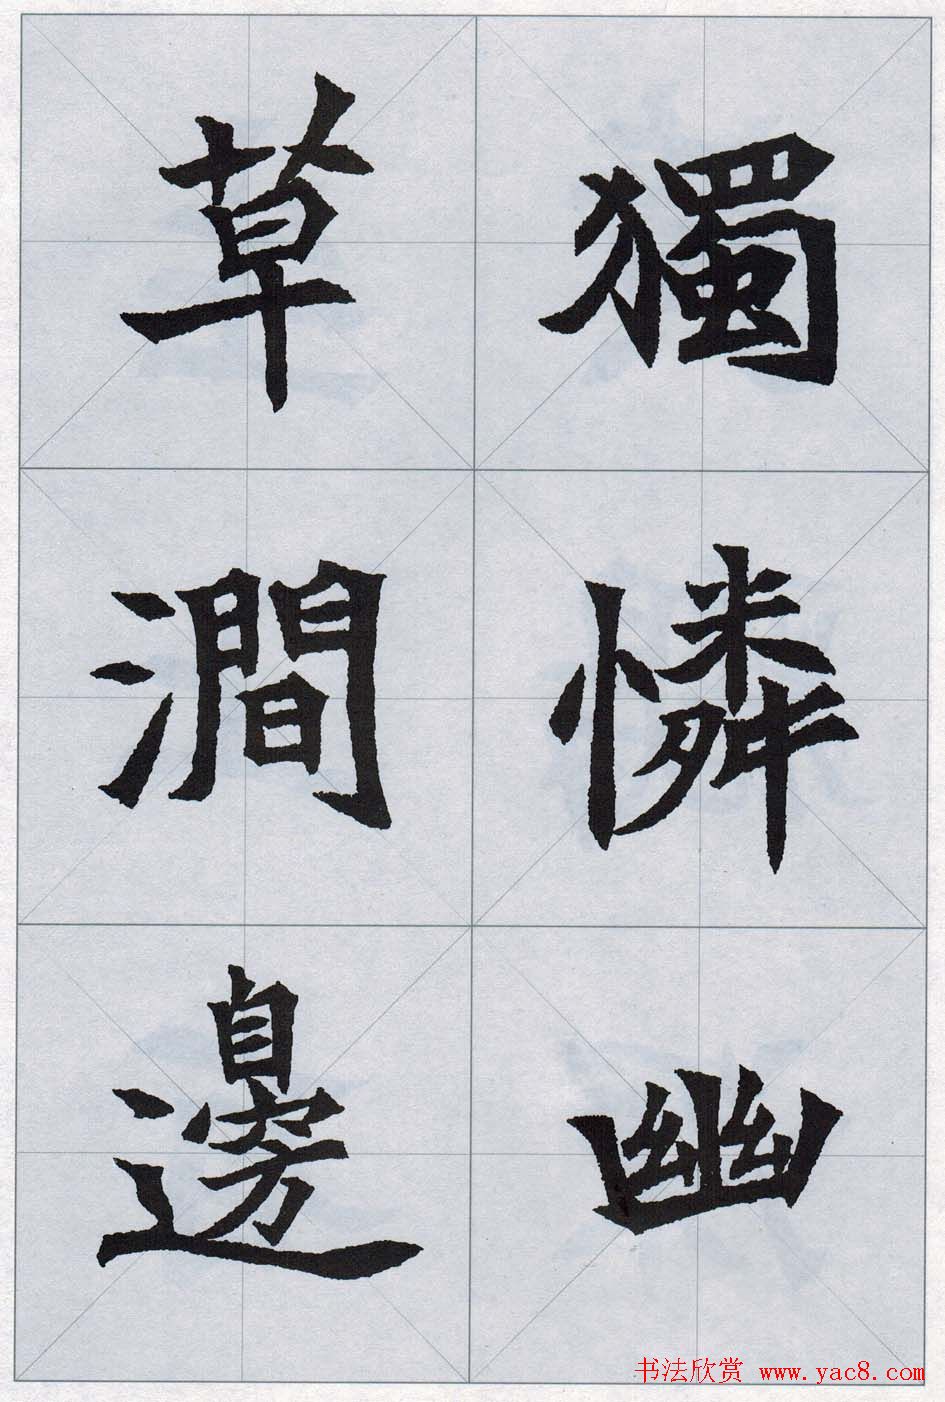 獨憐幽
草澗邊
书法欣赏 www.yac8.com